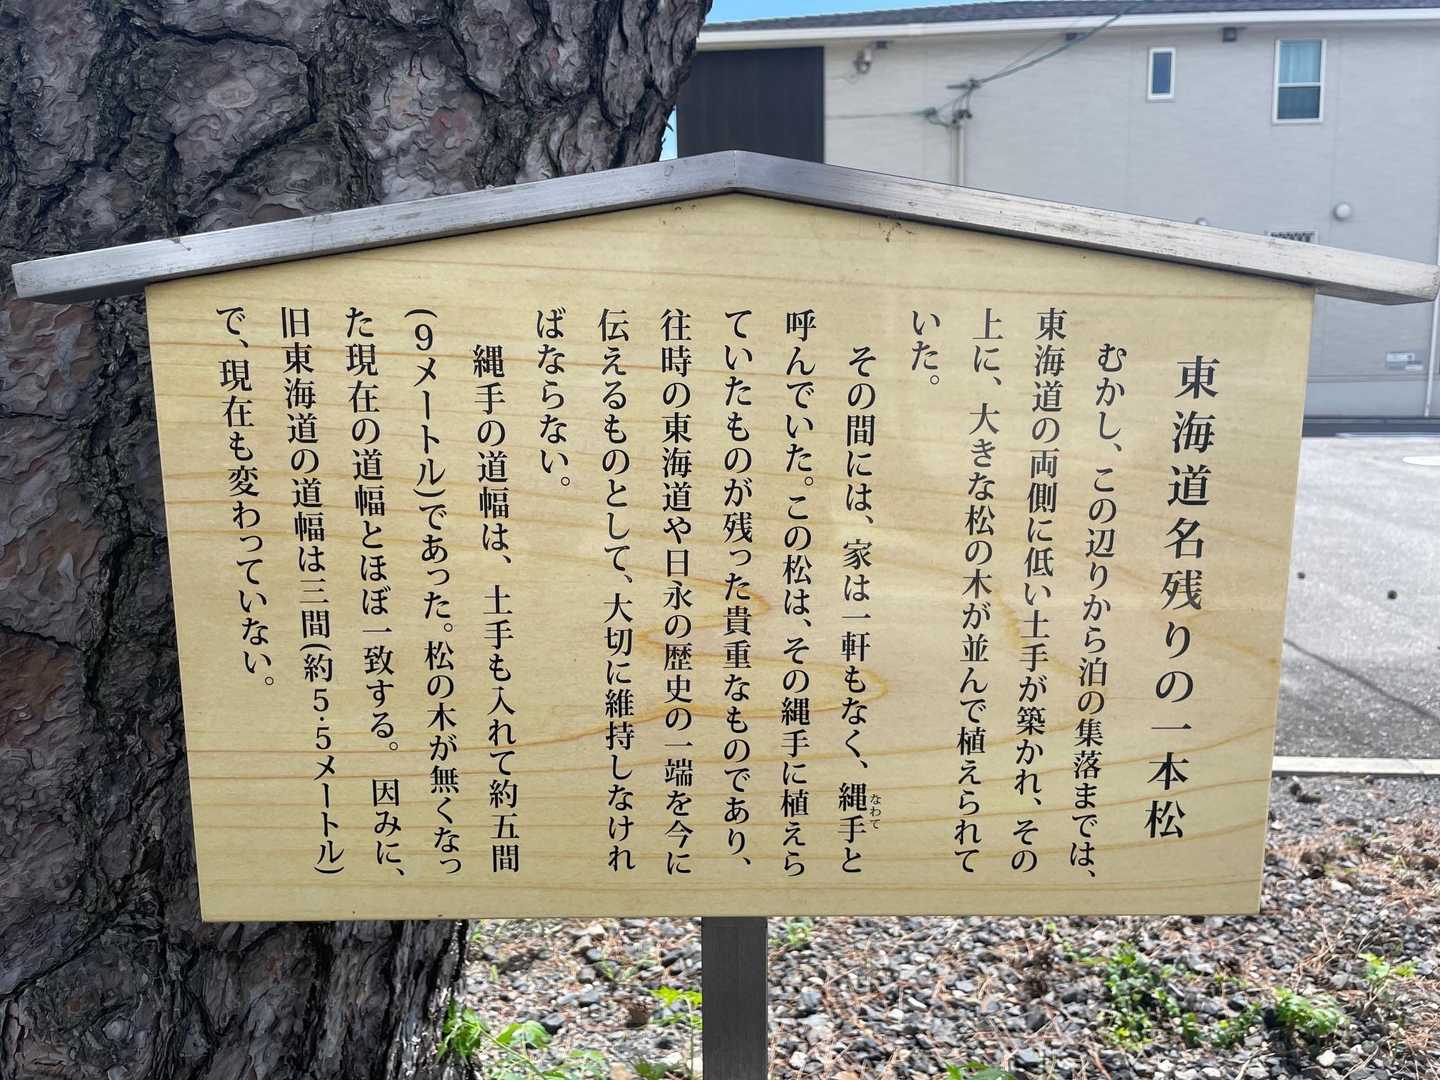 東海道名残りの一本松
むかし、この辺りから泊の集落までは、
東海道の両側に低い土手が築かれ、その
上に、大きな松の木が並んで植えられて
いた。
その間には、家は一軒もなく、縄手と
なわて
呼んでいた。この松は、その縄手に植えら
ていたものが残った貴重なものであり、
往時の東海道や日永の歴史の一端を今に
伝えるものとして、大切に維持しなけれ
ばならない。
縄手の道幅は、土手も入れて約五間
(9メートル)であった。松の木が無くなっ
た現在の道幅とほぼ一致する。 因みに、
旧東海道の道幅は三間(約5.5メートル)
で、現在も変わっていない。